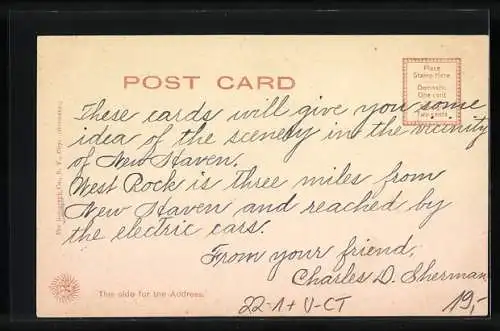 POST CARD
Place
Stamp Here
Domestic
One cent
Two cents.
These cards will give you some
idea of the scenery in the vicinity
of New Haven.
West Rock is three miles from
New Haven and reached by
the electric cars.
From your friend,
Charles D. Sherman
This side for the Address.
22-1+ V-CT
19,-